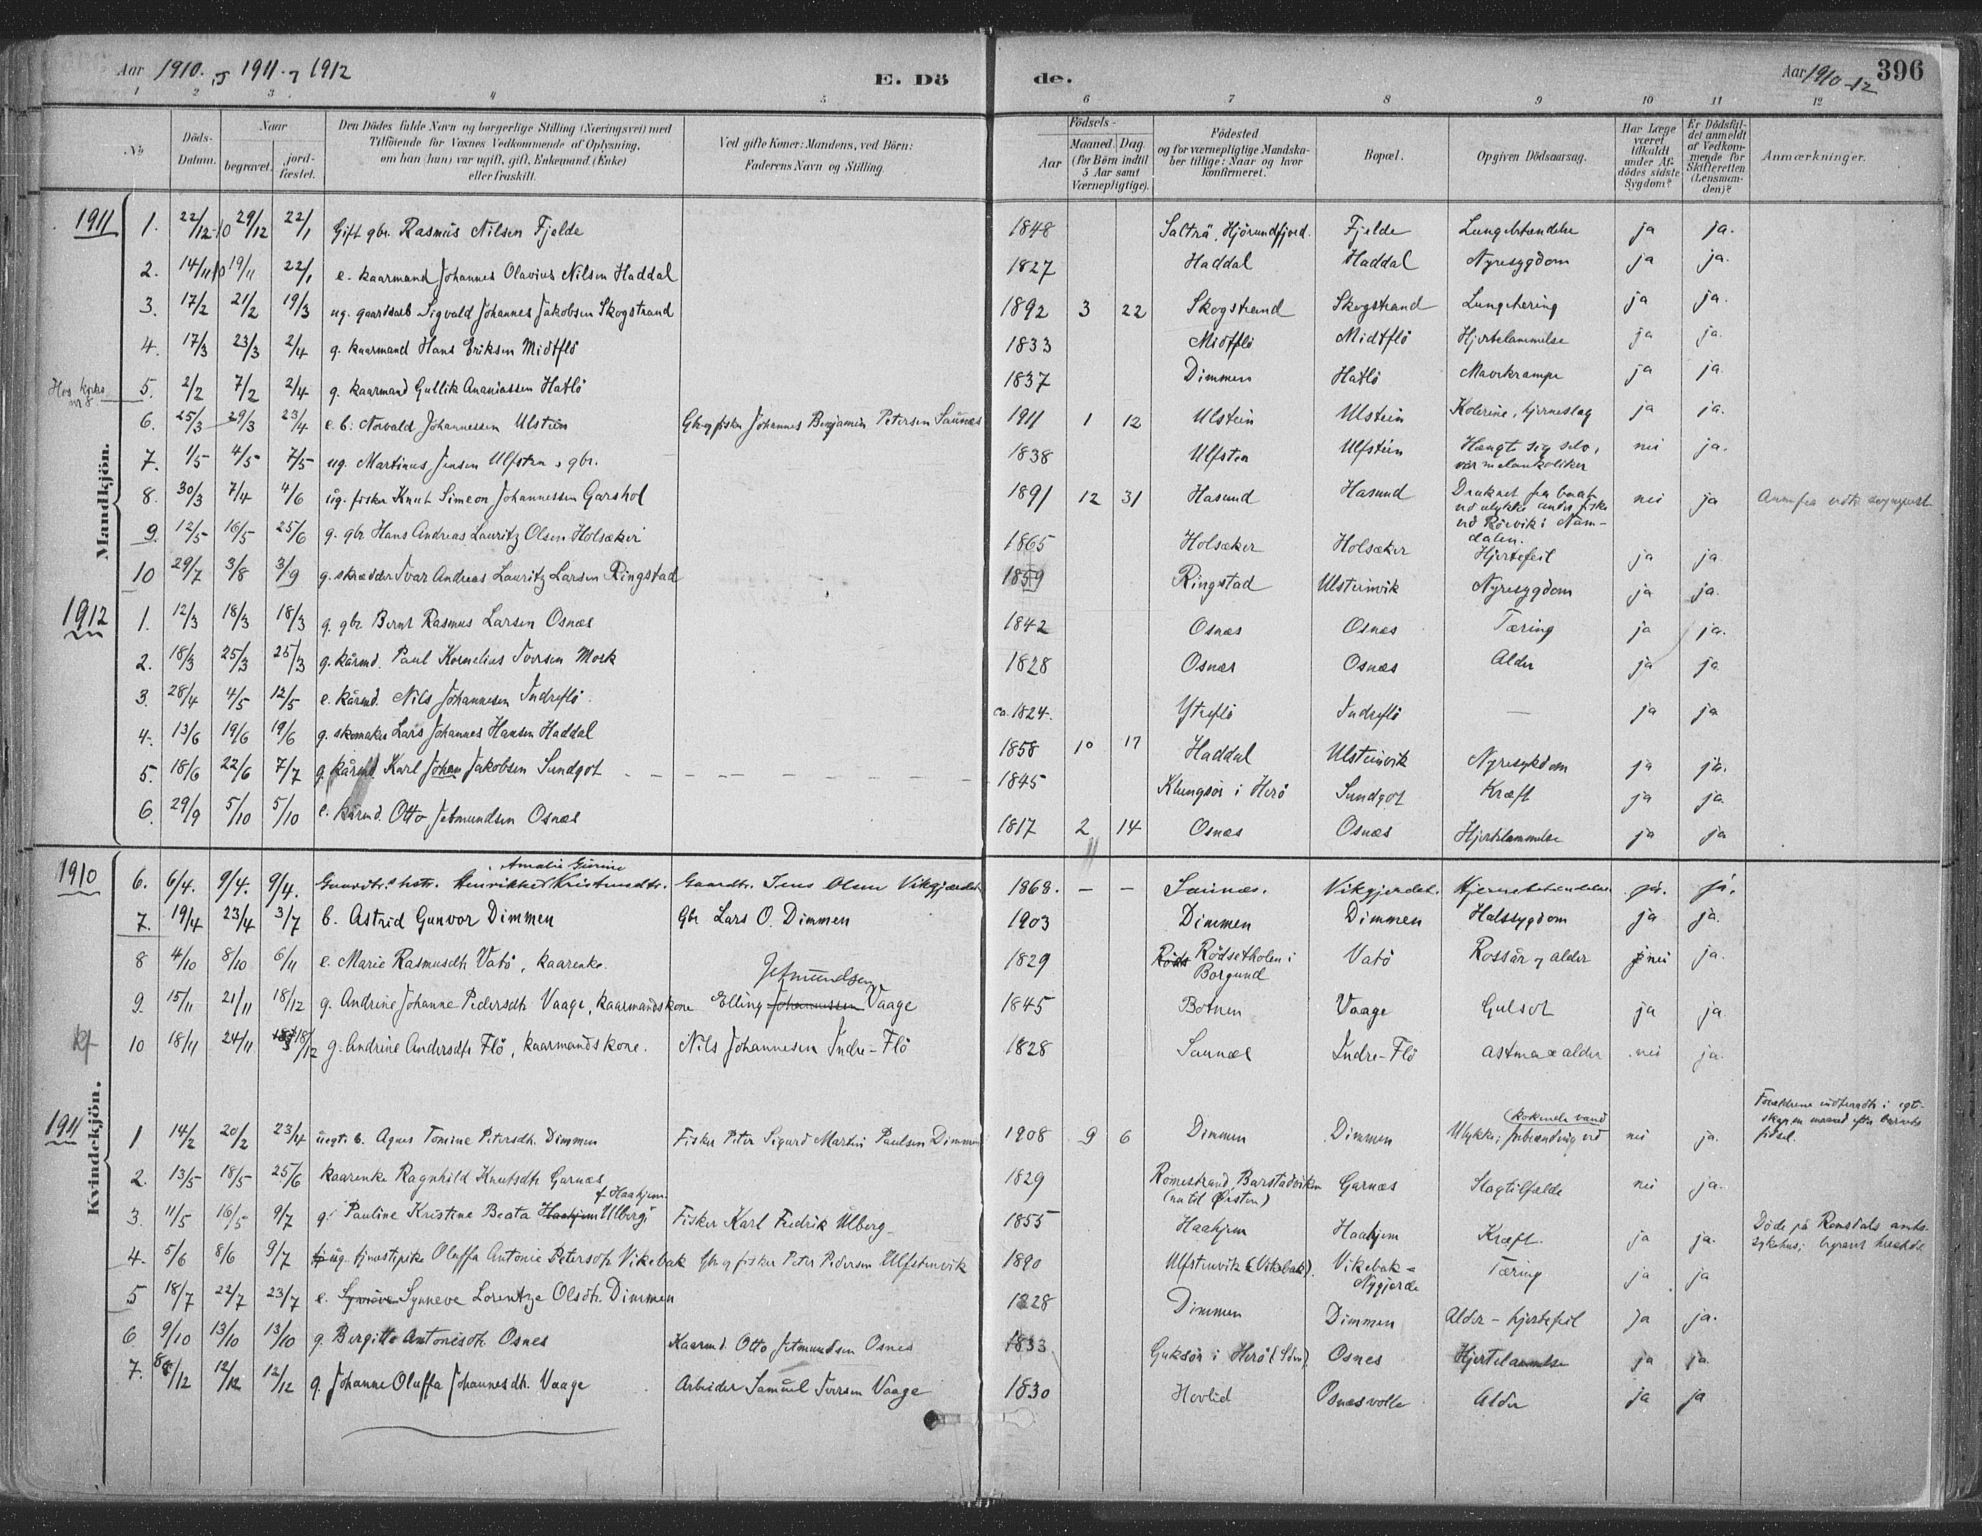 Aar 1910. 1911. 1912
E. Dö
de.
Aar 1910-12
396
1 2 3 4 5 6 7 8 9 10 11 12
No
Döds-
Datum.
Naar
begravet.
jord-
fæstet.
Den Dödes fulde Navn og borgerlige Stilling (Næringsvei) med
Tilföiende for Voxnes Vedkommende af Oplysning,
om han (hun) var ugift, gift, Enkemand, (Enke)
eller fraskilt.
Ved gifte Koner: Mandens, ved Börn:
Faderens Navn og Stilling.
Födsels-
Aar
Maaned. Dag.
(for Börn indtil
5 Aar samt
Værnepligtige).
Födested
og for værnepligtige Mandska-
ber tillige: Naar og hvor
konfirmeret.
Bopæl.
Opgiven Dödsaarsag.
Har Læge
været
tilkaldt
under Af-
dödes sidste
Sygdom?
Er Dödsfal-
det anmeldt
af Vedkom-
mende for
Skifteretten
(Lensman-
den)?
Anmærkninger.
Mandkjön.
1911
1. 22/12-10 29/12 22/1 Gift gbr. Rasmus Nilsen Fjelde 1848 Salträ, Hjörundfjord. Fjelde Lungebetændelse ja ja.
2. 14/11 10 19/11 22/1 e. kaarmand Johannes Olavius Nilsen Haddal 1827 Haddal Haddal Nyresygdom ja ja.
3. 17/2 21/2 19/3 ug. gaardsarb Sigvald Johannes Jakobsen Skogstrand 1892 3 22 Skogstrand Skogstrand Lungetæring ja ja.
4. 17/3 23/3 2/4 g. kaarmand Hans Eriksen Midtflö 1833 Midtflö Midtflö Hjertelammelse ja ja.
5. 2/2 7/2 2/4 g. kaarmand Gullik Ananiassen Hatlö 1837 Dimmen Hatlö Mavekrampe ja ja.
6. 25/3 29/3 23/4 e. b. Norvald Johannessen Ulstein Gbr og fisker Johannes Benjamin Petersen Saunæs 1911 1 12 Ulstein Ulstein Kolerine, hjerneslag ja ja.
7. 1/5 4/5 7/5 ug. Martinus Jensen Ulfsten, gbr. 1838 Ulfsten Ulfstein Hængte sig selv, var melankoliker nei ja.
8. 30/3 7/4 4/6 üg. fisker Knut Simeon Johannessen Garshol 1891 12 31 Hasund Hasund Druknet fra baat ved ulykke under fiske ved Rörvik i Nam-dalen. nei ja
9. 12/5 16/5 25/6 g. gbr Hans Andreas Lauritz Olsen Holsæker 1865 Holsæker Holsæker Hjertefeil ja ja
10 29/7 3/8 3/9 g. skrædder Ivar Andreas Lauritz Larsen Ringstad 1859 Ringstad Ulsteinvik Nyresygdom ja ja.
1912
1. 12/3 18/3 18/3 g. gbr. Bernt Rasmus Larsen Osnæs 1842 Osnæs Osnæs Tæring ja ja.
2. 18/3 25/3 25/3 g. kårmd. Paul Kornelius Iversen Mork 1828 Osnæs Osnæs Alder ja ja
3. 28/4 4/5 12/5 e. kårmd. Nils Johannesen Indreflö. ca. 1824. Ytreflö Indreflö — ja ja
4. 13/6 19/6 19/6 g. skomaker Lars Johannes Hansen Haddal 1858 10 17 Haddal Ulsteinvik Nyresykdom ja ja.
5. 18/6 22/6 7/7 g. kårmd. Karl Johan Jakobsen Sundgot 1845 Klungsör i Herö Sundgot Kræft ja ja.
6. 29/9 5/10 5/10 e. kårmd. Otto Jetmundsen Osnæs 1817 2 14 Osnæs Osnæs Hjertelammelse ja ja
Kvindekjön.
1910
6. 6/4. 9/4. 9/4. Henrikke Kristensdtr. Gaardbr. Jens Olsen Vikgjærdet 1868. — — Saunæs. Vikgjerdet. Hjernebetændelse ja. ja.
7. 19/4 23/4 3/7 b. Astrid Gunvor Dimmen Gbr Lars O. Dimmen 1903 Dimmen Dimmen Halssygdom ja ja.
8 4/10 8/10 6/11 e. Marie Rasmusdtr Vatö, kaarenke. 1829 Rödsetholen i Borgund Vatö Rossår og alder nei ja.
9. 15/11 21/11 18/12 g. Andrine Johanne Pedersdtr Vaage, kaarmandskone Elling Johannessen Jetmundsen Vaage 1845 Botnen Vaage Gulsot ja ja
kf
10 18/11 24/11 18/12 g. Andrine Andersdtr Flö, kaarmandskone. Nils Johannesen Indre-Flö 1828 Saunæs Indre-Flö astma & alder nei ja.
1911
1 14/2 20/2 23/4 üegt. b. Agnes Tomine Petersdtr. Dimmen Fisker Peter Sigurd Martin Paulsen Dimmen 1908 9 6 Dimmen Dimmen Ulykke; forbrænding ved kokende vand nei ja.
2. 13/5 18/5 25/6 kaarenke Ragnhild Knutsdtr Garnæs 1829 Romestrand, Barstadviken (nu til Örsten) Garnæs Slagtilfælde nei ja.
3. 11/5 16/5 9/7 g. Pauline Kristine Beata Haahjem Ulberg f. Haahjem Fisker Karl Fredrik Ulberg 1855 Haahjem Haahjem Kræft. ja ja. Döde på Romsdals amts-sykehus;
4. 5/6 8/6 9/7 ug. tjenestepike Oluffa Antonie Petersdtr Vikebak Gbr og fisker Peter Pedersen Ulfstenvik 1890 Ulfstenvik (Vikebak). Vikebak = Nygjerde Tæring ja ja
5 18/7 22/7 23/7 e. Synneve Lorentze Olsdtr. Dimmen 1828 Dimmen Dimmen Alder - hjertefeil ja ja.
6 9/10 13/10 13/10 g. Bergitte Antonisdtr. Osnes Kaarmd. Otto Jetmundsen Osnes 1833 Guksör i Herö Osnes Hjertelammelse ja ja
7. 8/12 12/12 12/12 g. Johanne Oluffa Johannesdtr. Vaage Arbeider Samuel Iversen Vaage 1830 Hovlid Osnæsvolle Alder ja ja